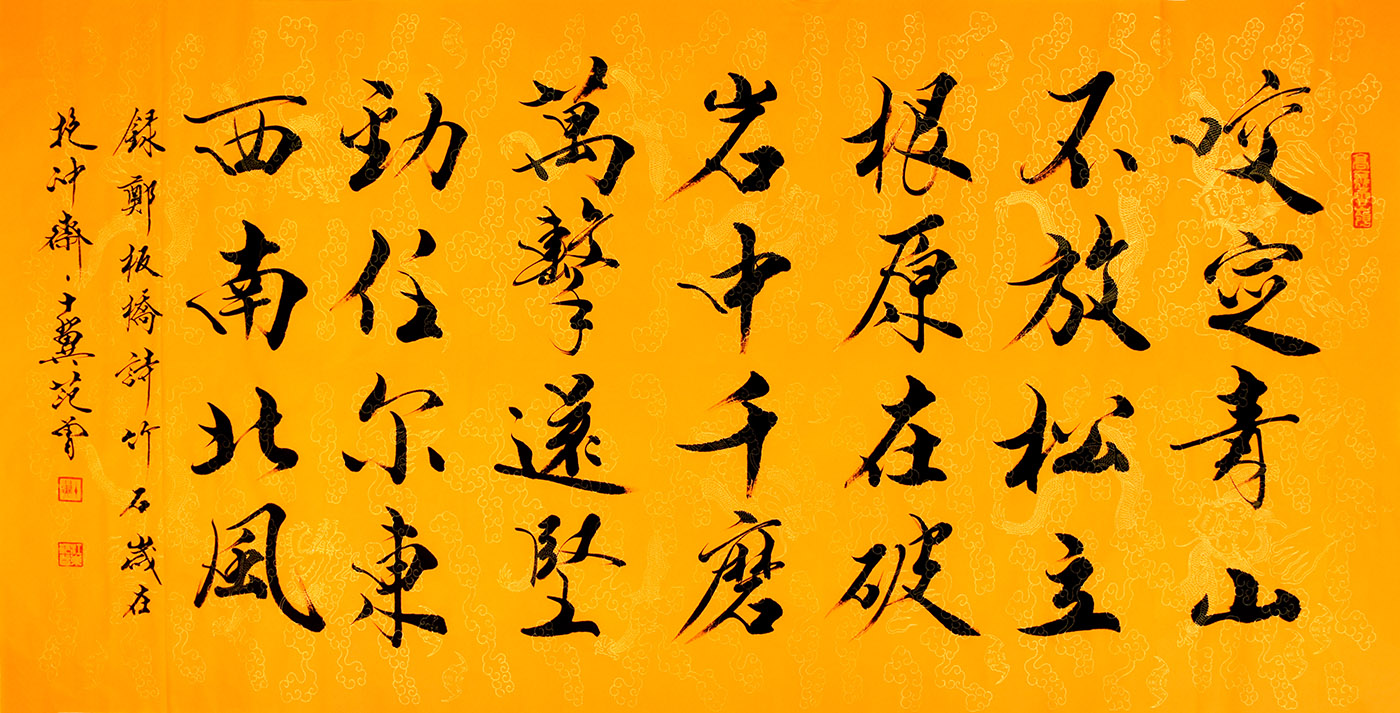 咬定青山
不放松立
根原在破
岩中千磨
萬擊還堅
勁任尔東
西南北風
録鄭板橋詩竹石歲在
抱冲齋、十翼范曾